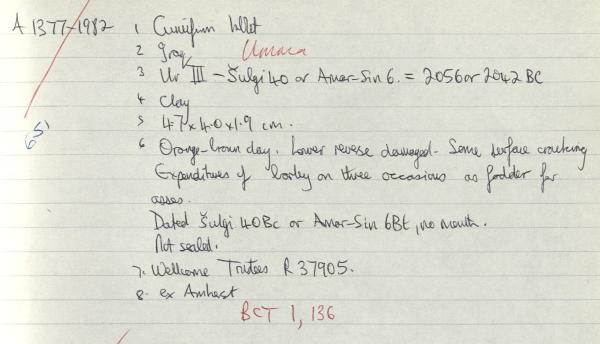 A 1377-1982 1 Cuneiform tablet
2 Iraq Umma
3 Ur III - Šulgi 40 or Amar-Sin 6. = 2056 or 2042 BC
4 Clay
5 4.7 x 4.0 x 1.9 cm.
6 Orange-brown clay. Lower reverse damaged. Some surface cracking
Expenditures of barley on three occasions as fodder for
asses.
Dated Šulgi 40 Bc or Amar-Sin 6Bt, no month.
Not sealed.
7. Wellcome Trustees R 37905.
8. ex Amherst
BCT 1, 136